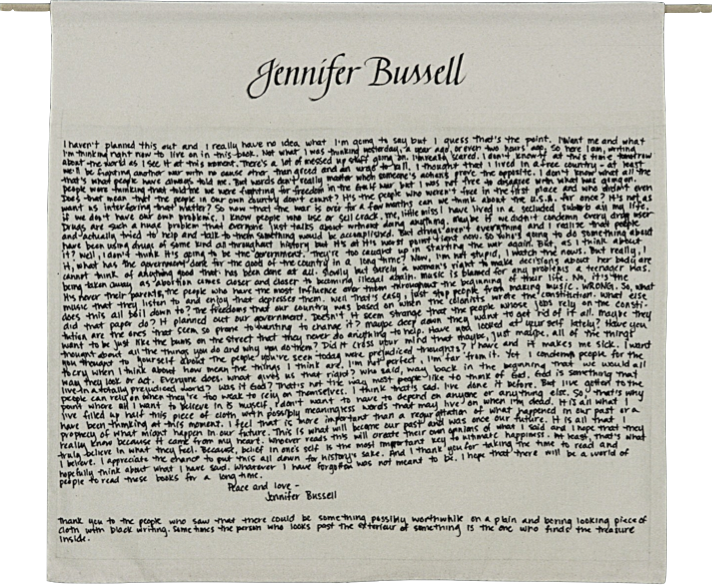 Jennifer Bussell
I haven't planned this out and I really have no idea, what I'm going to say but I guess that's the point. I want me and what
I'm thinking right now to live on in this book. Not what I was thinking yesterday, a year ago, or even two hours ago. So here I am, writing
about the world as I see it at this moment. There's a lot of messed up stuff going on. I'm really scared. I don't know if at this time tomorrow
we'll be fighting another war with no cause other than greed and an urge to kill. I thought that I lived in a free country - at least
that's what people have always told me. But words don't really matter when someone's actions prove the opposite. I don't know what all the
people were thinking that told me we were fighting for freedom in the Gulf war but I was not free to disagree with what was stronger.
Does that mean that the people in our own country don't count? It's the people who weren't free in the first place and who didn't even
want us interfering that matter? So now that the war is over for a few months can we think about the U.S.A. for once? It's not as
if we don't have our own problems. I know people who use or sell crack, me, little miss I have lived in a secluded suburb all my life
Drugs are such a huge problem that everyone just talks about without doing anything. Maybe if we didn't condemn every drug user
and actually tried to help and talk to them something would be accomplished. But drugs aren't everything and I realize that people
have been using drugs of some kind all throughout history but it's at its worst point right now. So who's going to do something about
it? Well, I don't think it's going to be the government. They're too caught up in starting the war again. But, as I think about
it, what has the government done for the good of the country in a long time? Now, I'm not stupid, I watch the news. But really, I
cannot think of anything good that has been done at all. Slowly but surely a woman's right to make decisions about her body are
being taken away as abortion comes closer and closer to becoming illegal again. Music is blamed for any problems a teenager has.
It's never their parents, the people who have the most influence over them throughout the beginning of their life. No, it's the
music that they listen to and enjoy that depresses them. Well that's easy, just stop people from making music. WRONG. So, what
does this all boil down to? The freedoms that our country was based on when the colonists wrote the constitution. What else
did that paper do? It planned out our government. Doesn't it seem strange that the people whose jobs rely on the consti-
tution are the ones that seem so prone to wanting to change it? Maybe deep down they want to get rid of it all. Maybe they
want to be just like the bums on the street that they never do anything to help. Have you looked at yourself lately? Have you
thought about all the things you do and why you do them? Did it cross your mind that maybe, just maybe, all of the things
you thought to yourself about the people you've seen today were prejudiced thoughts? I have and it makes me sick. I want
to cry when I think about how mean the things I think are. I'm not perfect, I'm far from it. Yet I condemn people for the
way they look or act. Everyone does. What gives us that right? Who said, way back in the beginning that we would all
live in a totally prejudiced world? Was it God? That's not the way most people like to think of God. God is something that
people can rely on when they're too weak to rely on themselves. I think that's sad. I've done it before. But I've gotten to the
point where all I want to believe in is myself. I don't want to have to depend on anyone or anything else. So, that's why
I've filled in half this piece of cloth with possibly meaningless words that may live on when I'm dead. It is all what I
have been thinking at this moment. I feel that is more important than a regurgitation of what happened in our past or a
prophecy of what might happen in our future. This is what will become our past and was once our future. It is all that I
really know because it came from my heart. Whoever reads this will create their own opinions of what I said and I hope that they
truly believe in what they feel. Because, belief in one's self is the most important key to ultimate happiness. At least, that's what
I believe. I appreciate the chance to put this all down for history's sake. And I thank you for taking the time to read and
hopefully think about what I have said. Whatever I have forgotten was not meant to be. I hope that there will be a world of
people to read these books for a long time.
Peace and love -
Jennifer Bussell
Thank you to the people who saw that there could be something possibly worthwhile on a plain and boring looking piece of
cloth with black writing. Sometimes the person who looks past the exteriour of something is the one who finds the treasure
inside.